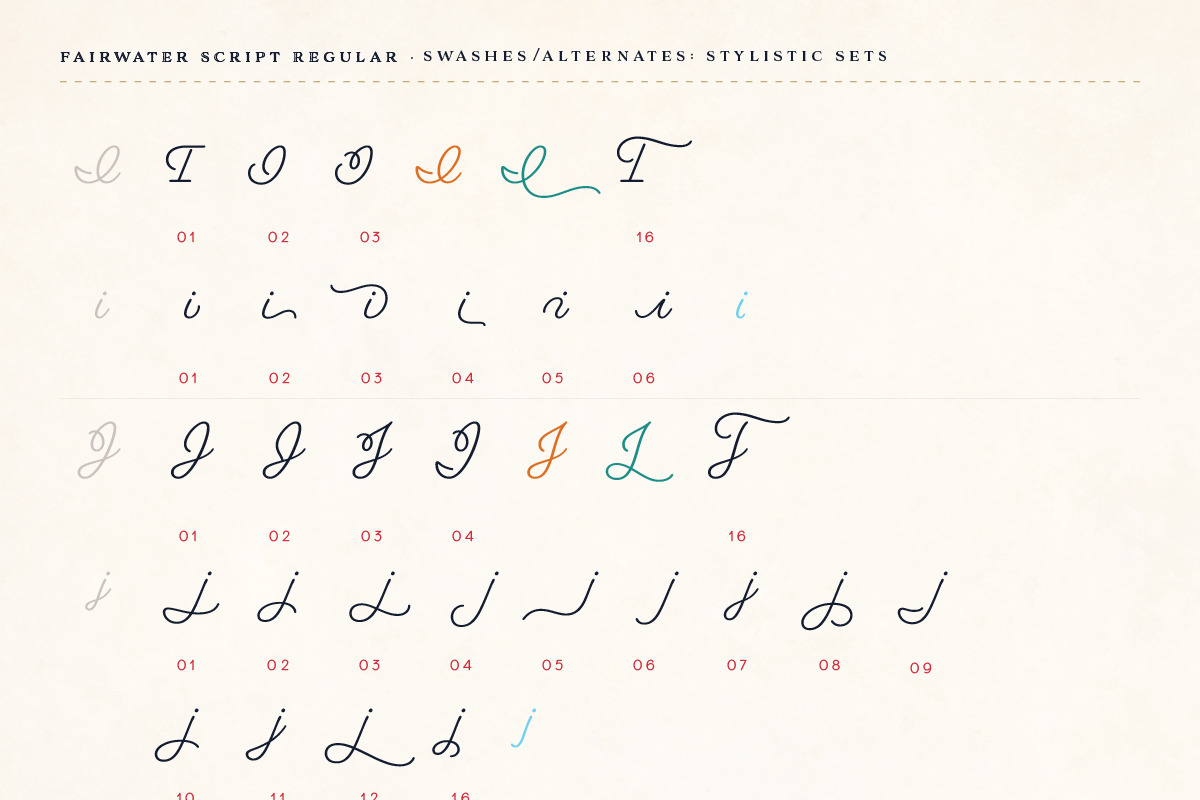 FAIRWATER SCRIPT REGULAR · SWASHES/ALTERNATES: STYLISTIC SETS
I I I I I I I
01 02 03 16
i i i i i i i i
01 02 03 04 05 06
J J J J J J J J
01 02 03 04 16
j j j j j j j j j j
01 02 03 04 05 06 07 08 09
j j j j j
10 11 12 16